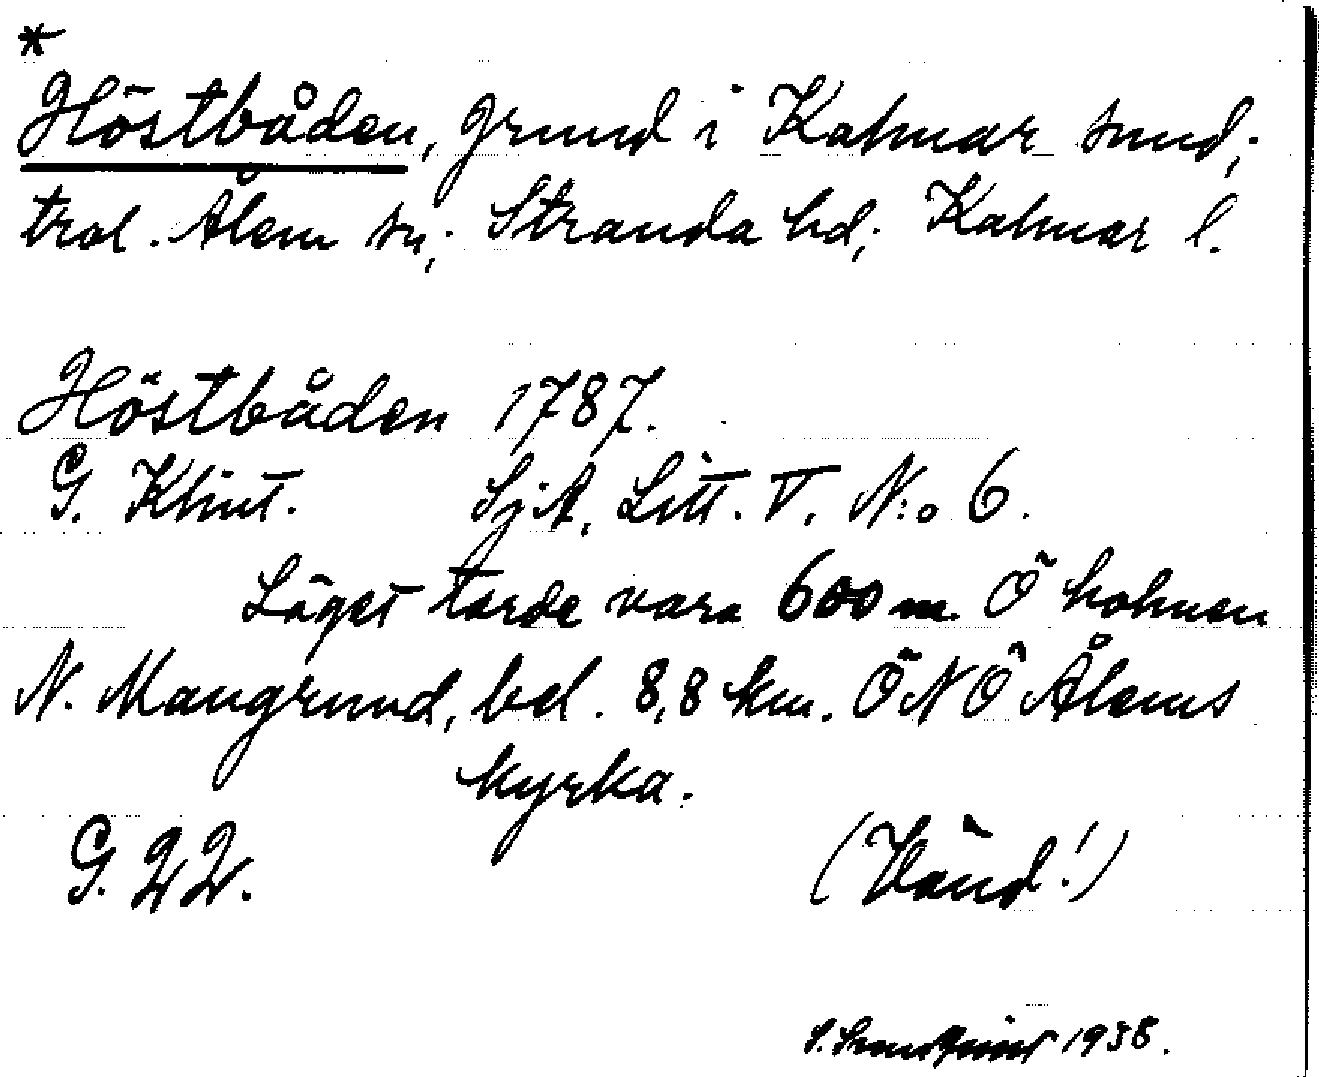 *
Höstbåden, grund i Kalmar sund;
trol. Ålem sn; Stranda hd; Kalmar l.
Höstbåden 1787.
G. Klint. SjA, Litt. V. N:o 6.
Läget torde vara 600 m. Ö holmen
N. Mangrund, bel. 8,8 km. ÖNÖ Ålems
kyrka.
G. 22.
(Vänd!)
1938.